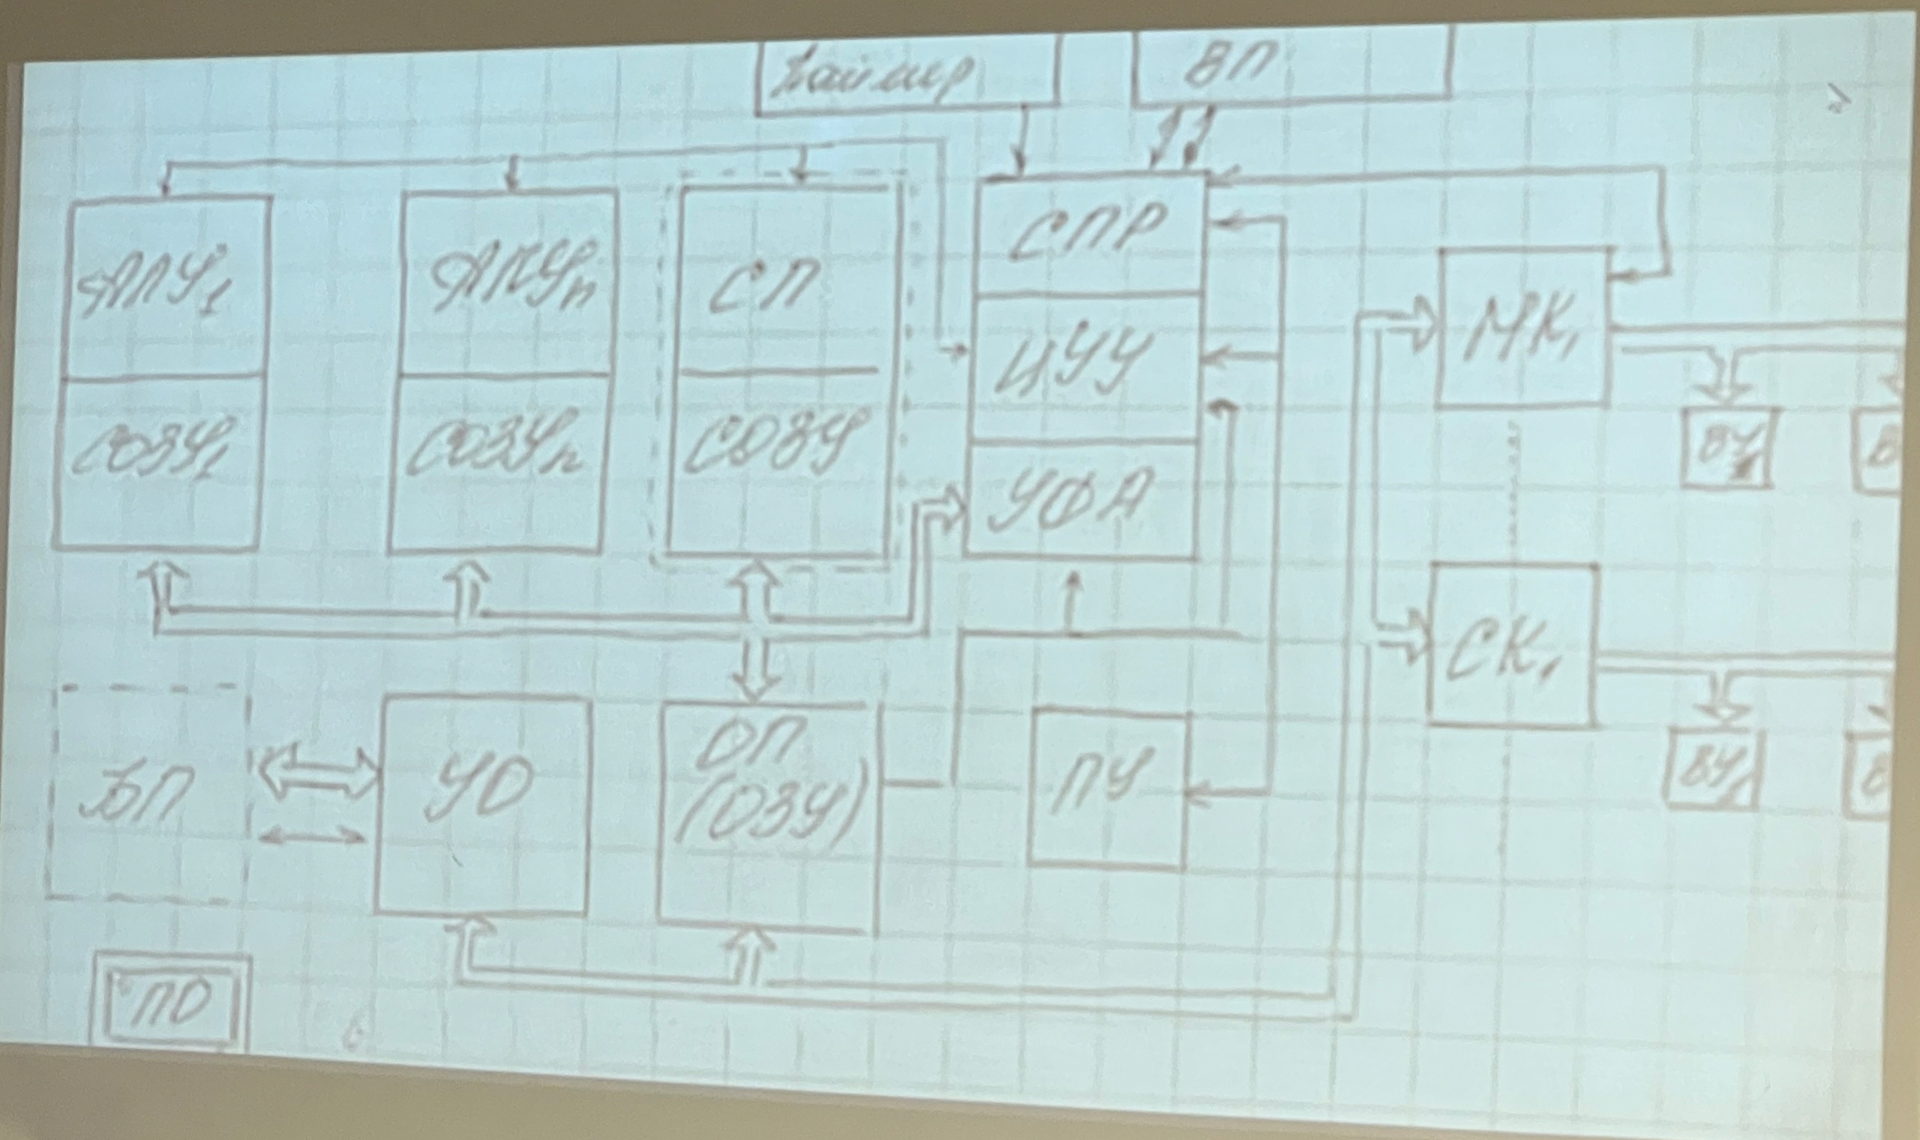 Таймер
ВП
АЛУ1
СОЗУ1
АЛУn
СОЗУn
СП
СОЗУ
СПР
ЦУУ
УФА
МК1
ВУ1
В
СК1
ВУ1
В
БП
УО
ОП
(ОЗУ)
ПУ
ПО